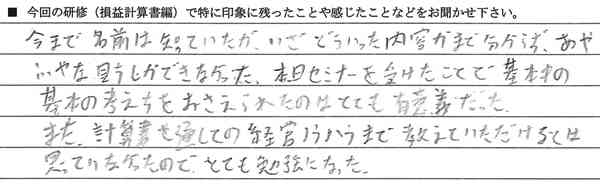 ■ 今回の研修（損益計算書編）で特に印象に残ったことや感じたことなどをお聞かせ下さい。
今まで名前は知っていたが、いざどういった内容かまで分からず、あや
ふやな しかできなかった。本日セミナーを受けたことで基本中の
基本の考え方をおさえられたのはとても有意義だった。
また、計算書を通しての経営ノウハウまで教えていただけるとは
思っていなかったので、とても勉強になった。